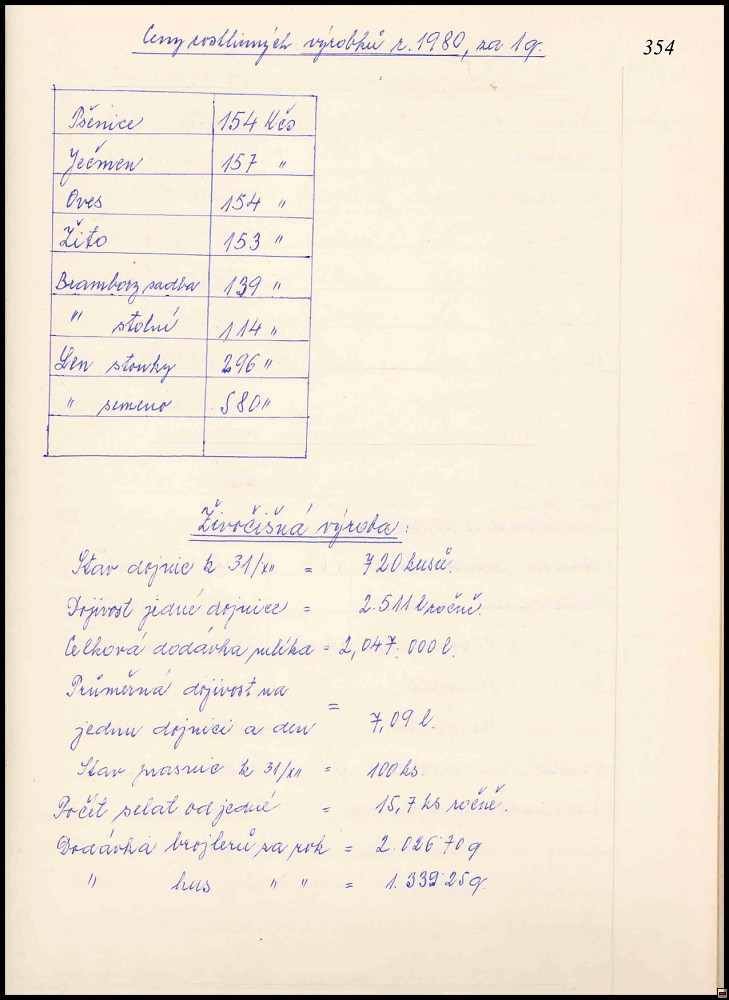 Ceny rostlinných výrobků r. 1980, za 1q.
354
Pšenice 154 Kčs
Ječmen 157 "
Oves 154 "
Žito 153 "
Brambory sadba 139 "
" stolní 114 "
Len stonky 296 "
" semeno 580 "
Živočišná výroba:
Stav dojnic k 31/XII = 720 kusů.
Dojivost jedné dojnice = 2.511 l ročně.
Celková dodávka mléka = 2,047.000 l.
Průměrná dojivost na
jednu dojnici a den = 7,09 l.
Stav prasnic k 31/XII = 100 ks.
Počet selat od jedné = 15,7 ks ročně.
Dodávka brojlerů za rok = 2.026'70 q
" hus " " = 1.339'25 q.